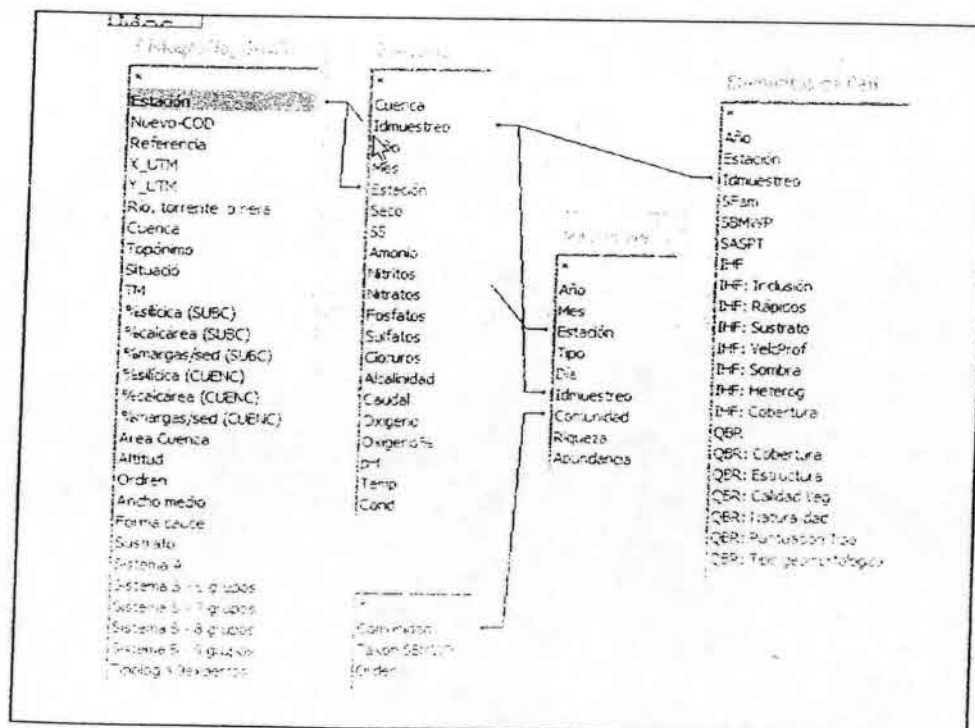 *
Estación
Nuevo-COD
Referencia
X_UTM
Y_UTM
Río, torrente
Cuenca
Topónimo
Situació
TM
%silícica (SUBC)
%calcárea (SUBC)
%margas/sed (SUBC)
%silícica (CUENC)
%calcárea (CUENC)
%margas/sed (CUENC)
Area Cuenca
Altitud
Ordren
Ancho medio
Forma cauce
Sustrato
Sistema A
Sistema B - grupos
Sistema B - 7 grupos
Sistema B - 8 grupos
Sistema B - 9 grupos
*
Cuenca
Idmuestreo
Año
Mes
Estación
Seco
SS
Amonio
Nitritos
Nitratos
Fosfatos
Sulfatos
Cloruros
Alcalinidad
Caudal
Oxigeno
Oxigeno%
pH
Temp
Cond
*
Comunidad
Taxon
Orden
*
Año
Mes
Estación
Tipo
Día
Idmuestreo
Comunidad
Riqueza
Abundancia
Elementos de
*
Año
Estación
Idmuestreo
SFam
SBMWP
SASPT
IHF
IHF: Inclusión
IHF: Rápidos
IHF: Sustrato
IHF: VeloProf
IHF: Sombra
IHF: Heterog
IHF: Cobertura
QBR
QBR: Cobertura
QBR: Estructura
QBR: Calidad Veg
QBR: Naturalidad
QBR: Puntuación Tipo
QBR: Tipo geomorfológico